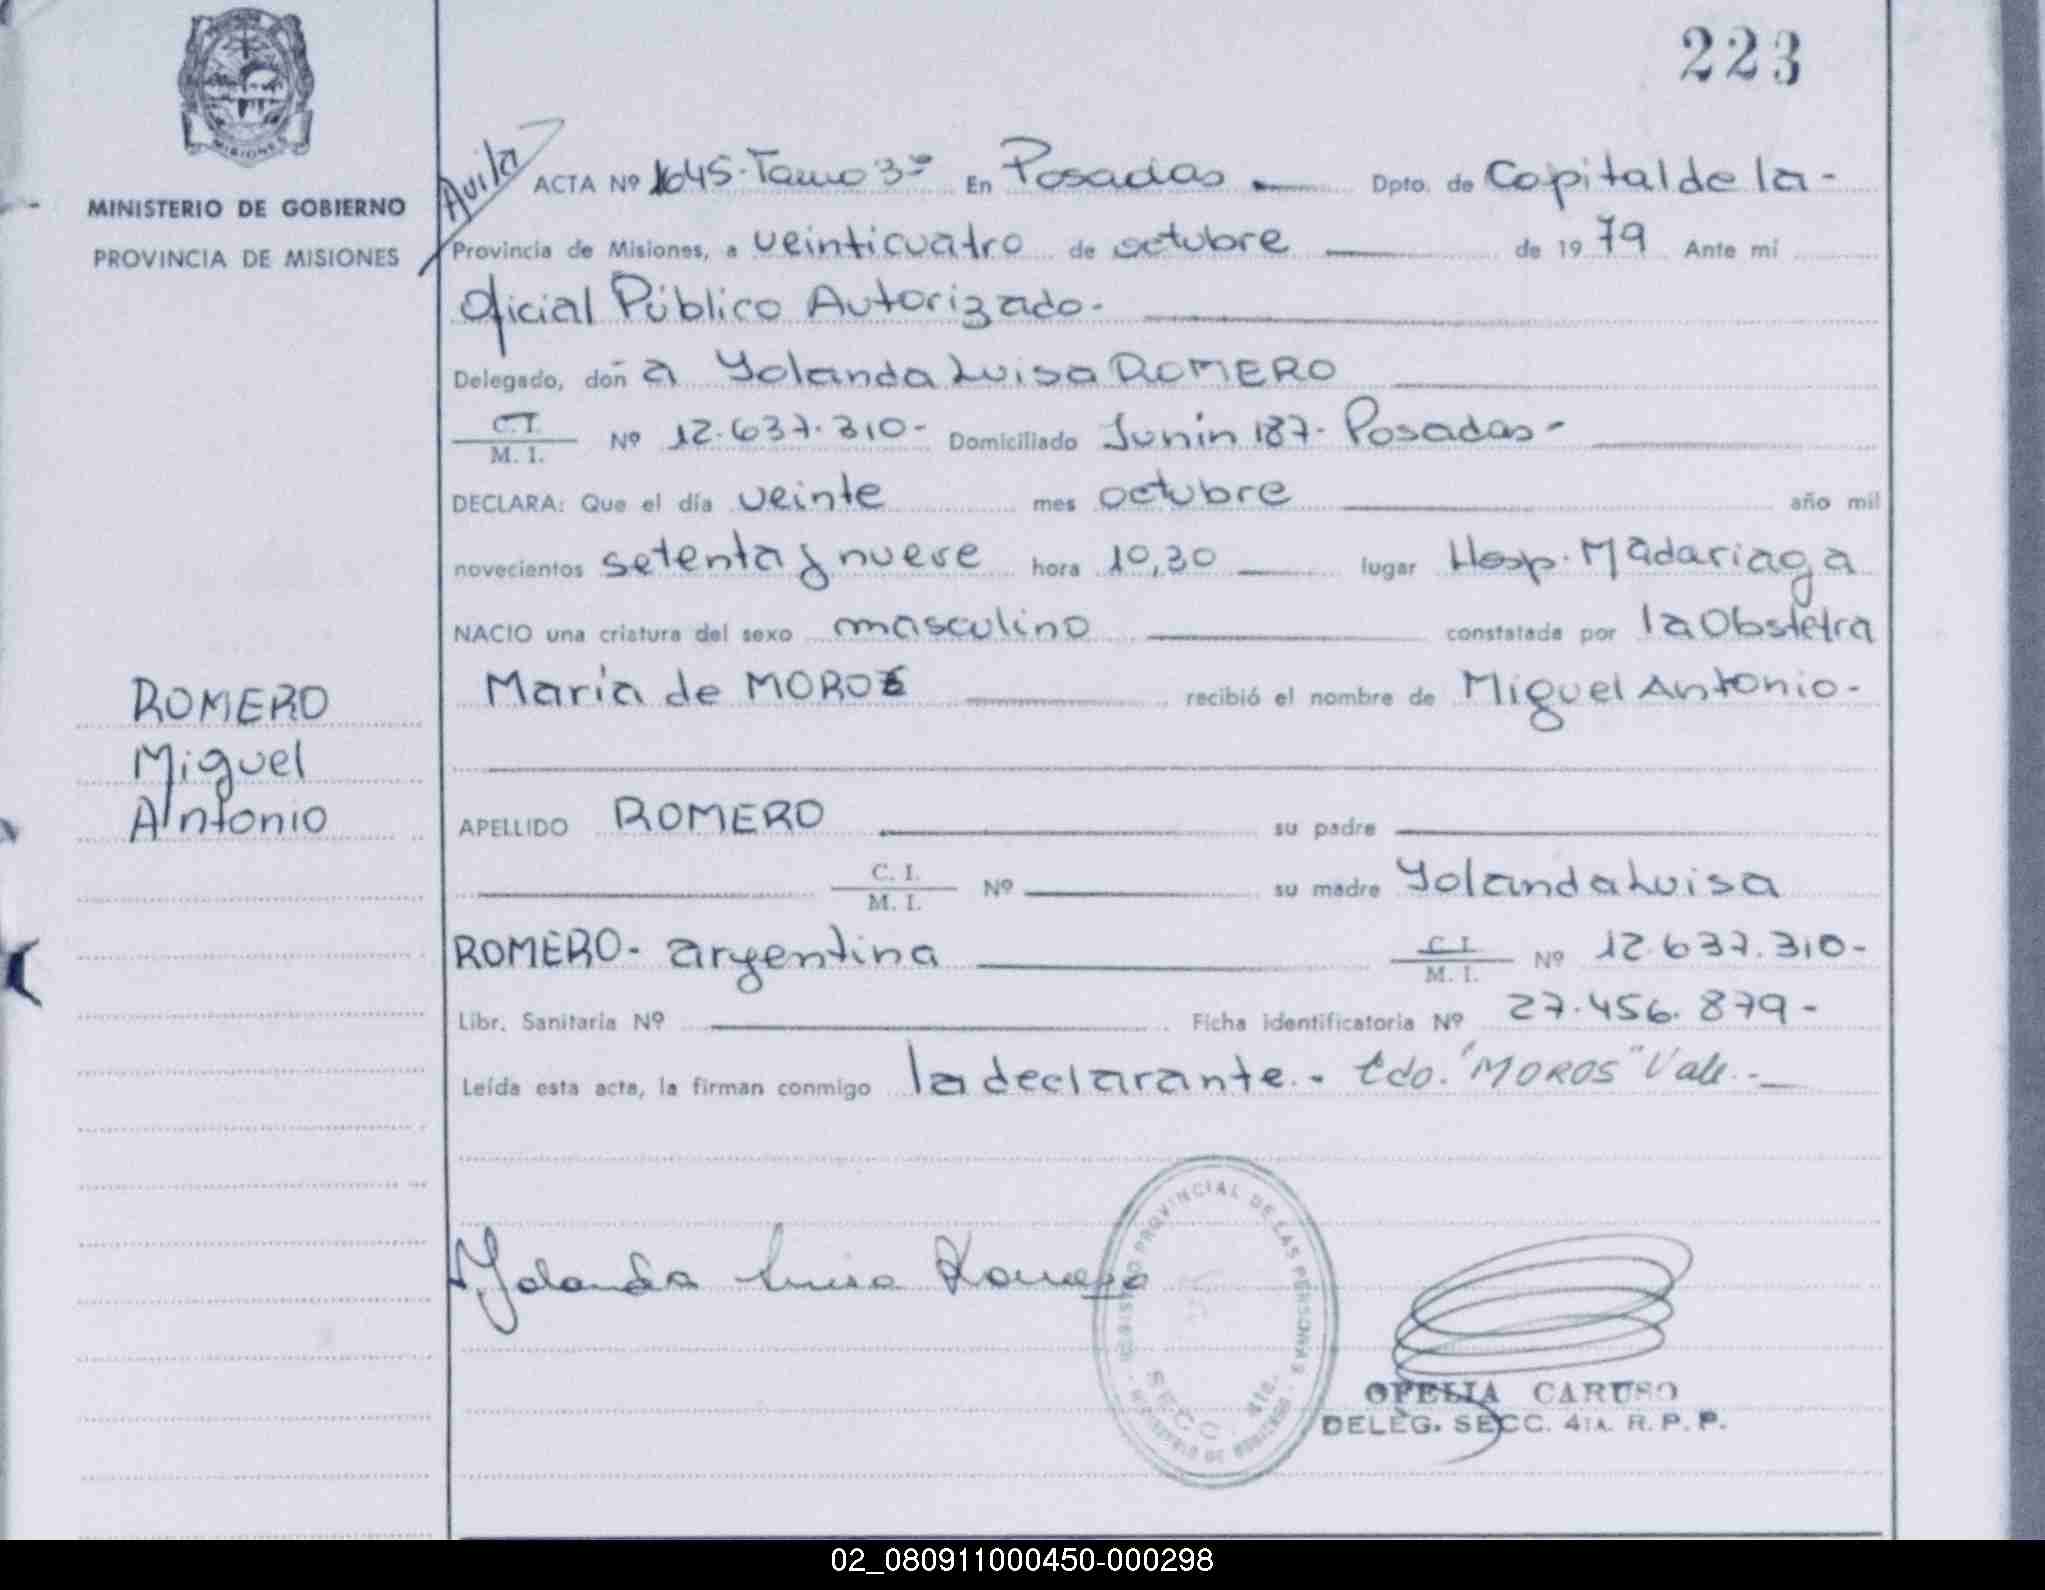 223
MISIONES
MINISTERIO DE GOBIERNO
PROVINCIA DE MISIONES
Avila
ACTA Nº 1645-Tomo 3º En Posadas Dpto. de Capital de la-
Provincia de Misiones, a veinticuatro de octubre de 1979 Ante mí
Oficial Público Autorizado-
Delegado, don a Yolanda Luisa ROMERO
C.I.
M. I. Nº 12.637.310- Domiciliado Junin 187- Posadas-
DECLARA: Que el día veinte mes octubre año mil
novecientos setenta y nueve hora 10,30 lugar Hosp. Madariaga
NACIO una criatura del sexo masculino constatada por la Obstetra
María de MOROS recibió el nombre de Miguel Antonio-
ROMERO
Miguel
Antonio
APELLIDO ROMERO su padre
C. I.
M. I. Nº su madre Yolanda Luisa
ROMERO- argentina C.I.
M. I. Nº 12.637.310-
Libr. Sanitaria Nº Ficha identificatoria Nº 27.456.879-
Leída esta acta, la firman conmigo la declarante.- Edo. "MOROS" Vale.-
Yolanda Luisa Romero
REGISTRO PROVINCIAL DE LAS PERSONAS
SECC. 4ta.-
MINISTERIO DE GOBIERNO
OFELIA CARUSO
DELEG. SECC. 4TA. R. P. P.
02_080911000450-000298